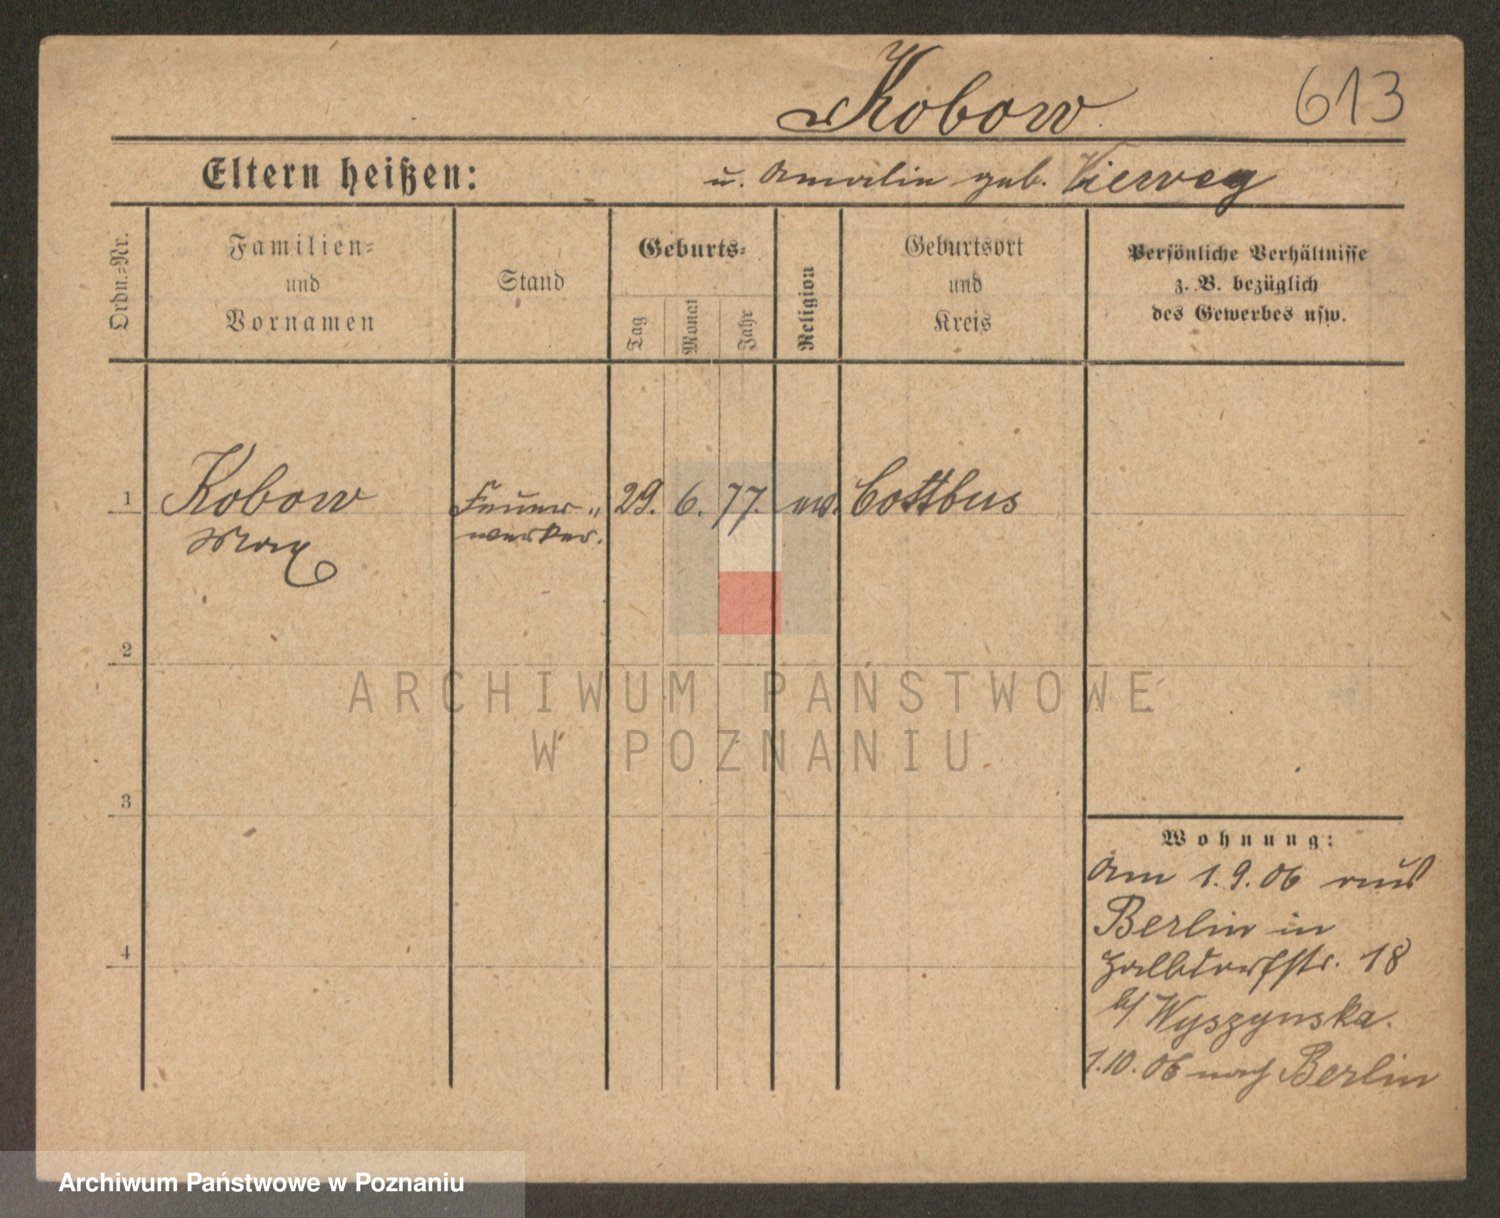 Kobow
613
Eltern heißen:
u. Amalie geb. Vieweg
Ordn.-Nr.
Familien-
und
Vornamen
Stand
Geburts-
Tag
Monat
Jahr
Religion
Geburtsort
und
Kreis
Persönliche Verhältnisse
z. B. bezüglich
des Gewerbes usw.
1
Kobow
Max
Feuer-
werker.
29. 6. 77. ev. Cottbus
2
ARCHIWUM PAŃSTWOWE
W POZNANIU
3
Wohnung:
Am 1.9.06 aus
Berlin in
Halbdorfstr. 18
4
b/ Wyszynska.
1.10.06 nach Berlin
Archiwum Państwowe w Poznaniu